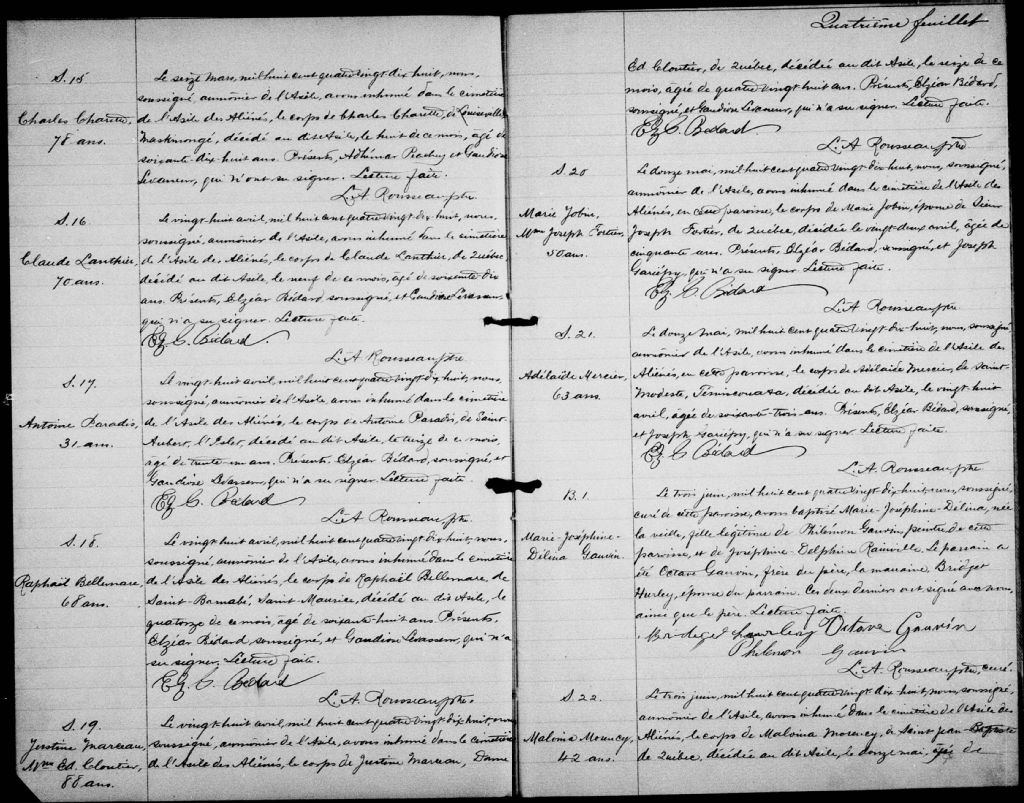 S. 15
Charles Charette,
78 ans.
Le seize mars, mil huit cent quatre vingt dix huit, nous,
soussigné aumônier de l'Asile, avons inhumé dans le cimetière
de l'Asile des Aliénés, le corps de Charles Charette, de Louiseville,
Maskinongé, décédé au dit Asile, le huit de ce mois, âgé de
soixante-dix-huit ans. Présents, Adhémar et Gaudiose
Levasseur, qui n'ont su signer. Lecture faite.
L. A. Rousseau, ptre.
S. 16.
Claude Lanthier,
70 ans.
Le vingt-huit avril, mil huit cent quatre vingt dix huit, nous,
soussigné, aumônier de l'Asile, avons inhumé dans le cimetière
de l'Asile des Aliénés, le corps de Claude Lanthier, de Québec,
décédé au dit Asile, le neuf de ce mois, âgé de soixante-dix
ans. Présents, Elzéar Bédard soussigné, et Gaudiose Levasseur,
qui n'a su signer. Lecture faite.
Elz. C. Bédard.
L. A. Rousseau, ptre
S. 17.
Antoine Paradis,
31 ans.
Le vingt-huit avril, mil huit cent quatre vingt dix huit, nous,
soussigné, aumônier de l'Asile, avons inhumé dans le cimetière
de l'Asile des Aliénés, le corps de Antoine Paradis, de Saint
Aubert, l'Islet, décédé au dit Asile, le treize de ce mois,
âgé de trente-un ans. Présents, Elzéar Bédard, soussigné, et
Gaudiose Levasseur, qui n'a su signer. Lecture faite.
Elz. C. Bédard
L. A. Rousseau, ptre.
S. 18.
Raphaël Bellemare,
68 ans.
Le vingt-huit avril, mil huit cent quatre vingt dix huit, nous,
soussigné, aumônier de l'Asile, avons inhumé dans le cimetière
de l'Asile des Aliénés, le corps de Raphaël Bellemare, de
Saint-Barnabé, Saint Maurice, décédé au dit Asile, le
quatorze de ce mois, âgé de soixante-huit ans. Présents,
Elzéar Bédard, soussigné, et Gaudiose Levasseur, qui n'a
su signer. Lecture faite.
Elz. C. Bédard
L. A. Rousseau, ptre.
S. 19.
Justine Marceau,
Mme Ed. Cloutier,
88 ans.
Le vingt-huit avril, mil huit cent quatre vingt dix huit, nous
soussigné, aumônier de l'Asile, avons inhumé dans le cimetière
de l'Asile des Aliénés, le corps de Justine Marceau, Dame
Quatrième feuillet
Ed. Cloutier, de Québec, décédée au dit Asile, le seize de ce
mois, âgée de quatre vingt huit ans. Présents, Elzéar Bédard,
soussigné et Gaudiose Levasseur, qui n'a su signer. Lecture faite.
Elz. C. Bédard
L. A. Rousseau, ptre
S. 20
Marie Jobin,
Mme Joseph Fortier,
50 ans.
Le douze mai, mil huit cent quatre vingt dix huit, nous, soussigné,
aumônier de l'Asile, avons inhumé dans le cimetière de l'Asile des
Aliénés, en cette paroisse, le corps de Marie Jobin, épouse de Sieur
Joseph Fortier, de Québec, décédée le vingt-deux avril, âgée de
cinquante ans. Présents, Elzéar Bédard, soussigné, et Joseph
Gariépy, qui n'a su signer. Lecture faite.
Elz. C. Bédard
L. A. Rousseau, ptre
S. 21.
Adélaïde Mercier,
63 ans.
Le douze mai, mil huit cent quatre vingt dix huit, nous, soussigné,
aumônier de l'Asile, avons inhumé dans le cimetière de l'Asile des
Aliénés, en cette paroisse, le corps de Adélaïde Mercier, de Saint-
Modeste, Témiscouata, décédée au dit Asile, le vingt huit
avril, âgée de soixante-trois ans. Présents, Elzéar Bédard, soussigné,
et Joseph Gariépy, qui n'a su signer. Lecture faite.
Elz. C. Bédard
L. A. Rousseau, ptre
B. 1.
Marie-Joséphine-
Délina Gauvin.
Le trois juin, mil huit cent quatre vingt dix huit, nous, soussigné,
curé de cette paroisse, avons baptisé Marie-Joséphine-Délina, née
la veille, fille légitime de Philémon Gauvin, peintre de cette
paroisse, et de Joséphine-Delphine Rainville. Le parrain a
été Octave Gauvin, frère du père, la marraine, Bridget
Hurley, épouse du parrain. Ces deux derniers ont signé avec nous,
ainsi que le père. Lecture faite.
Octave Gauvin
Philemon Gauvin
L. A. Rousseau, ptre, curé.
S. 22.
Malvina Morency,
42 ans.
Le trois juin, mil huit cent quatre vingt dix huit, nous, soussigné,
aumônier de l'Asile, avons inhumé dans le cimetière de l'Asile des
Aliénés, le corps de Malvina Morency, de Saint Jean-Baptiste
de Québec, décédée au dit Asile, le douze mai, âgée de